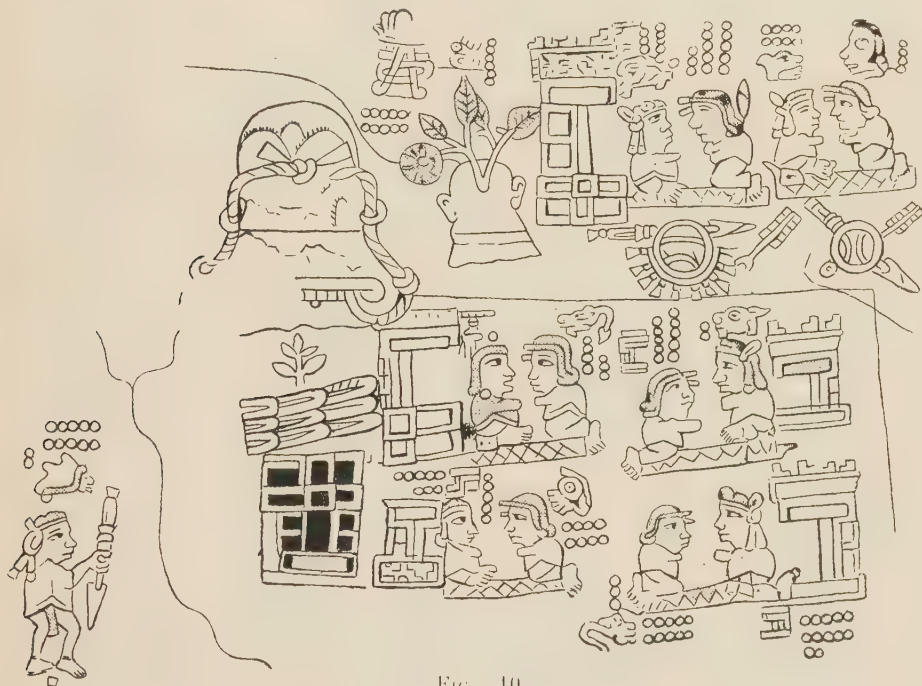 Fig. 10